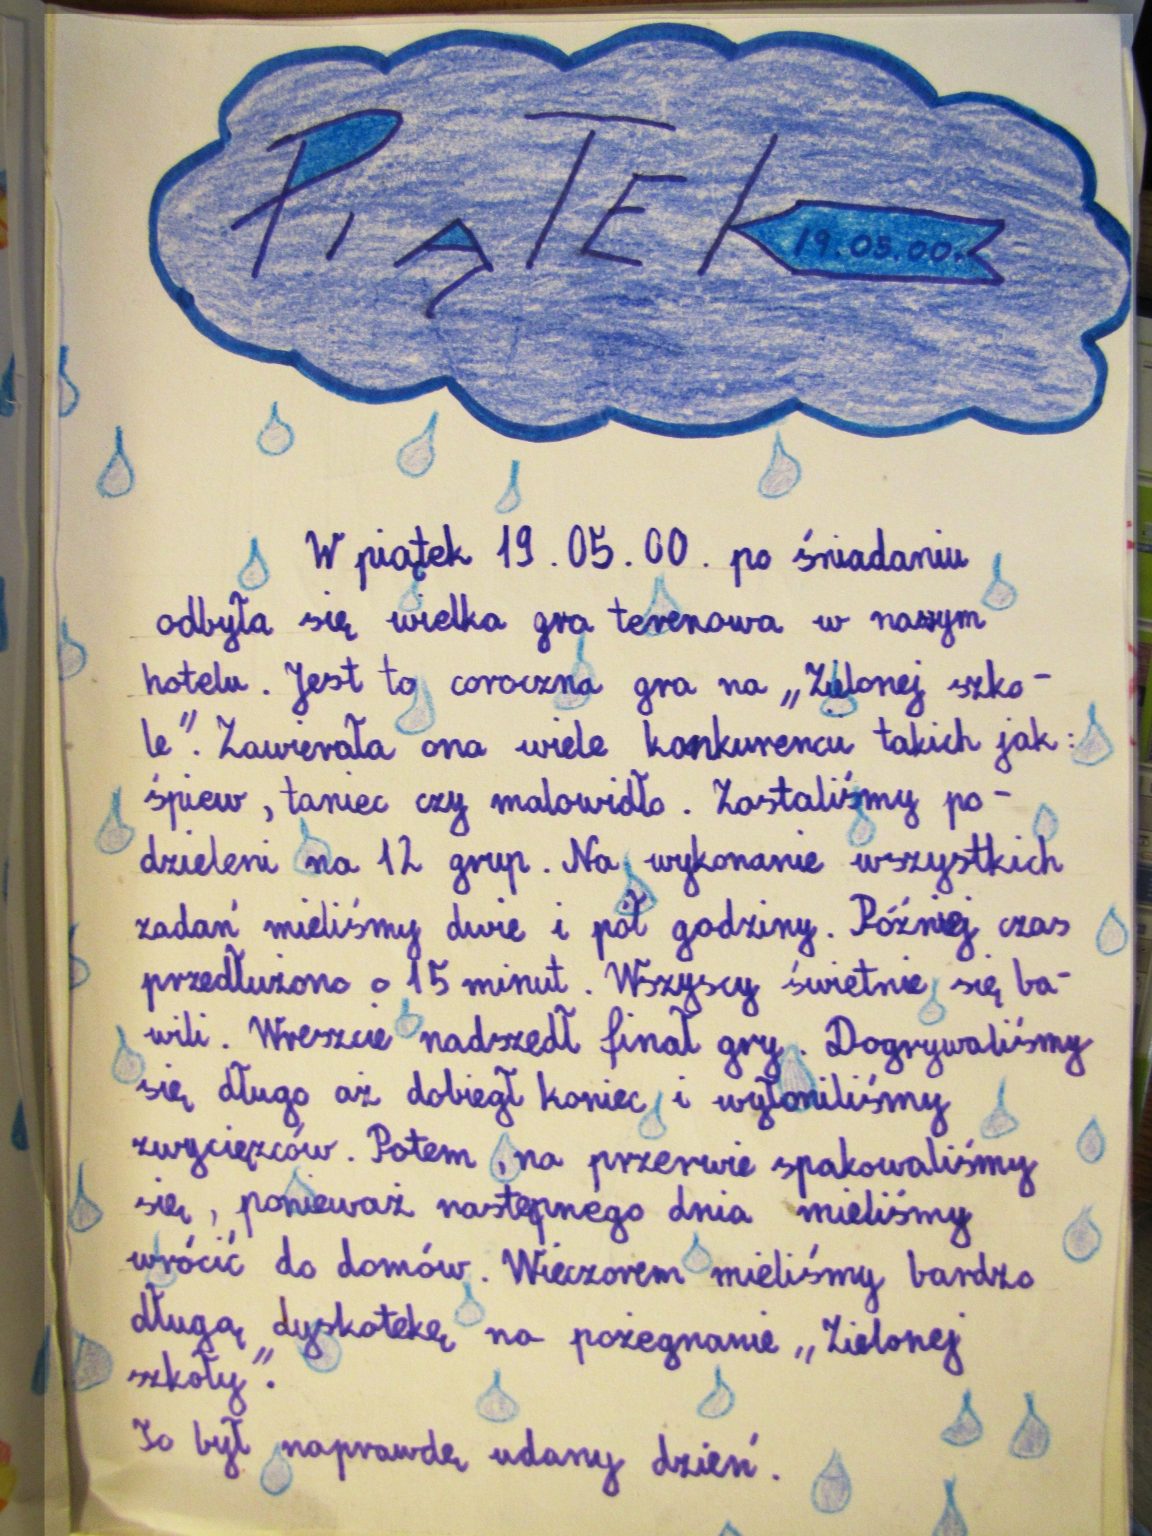 PIĄTEK
19.05.00.
W piątek 19.05.00. po śniadaniu
odbyła się wielka gra terenowa w naszym
hotelu. Jest to coroczna gra na „Zielonej szko-
le”. Zawierała ona wiele konkurencji takich jak:
śpiew, taniec czy malowidło. Zostaliśmy po-
dzieleni na 12 grup. Na wykonanie wszystkich
zadań mieliśmy dwie i pół godziny. Później czas
przedłużono o 15 minut. Wszyscy świetnie się ba-
wili. Wreszcie nadszedł finał gry. Dogrywaliśmy
się długo aż dobiegł koniec i wyłoniliśmy
zwycięzców. Potem, na przerwie spakowaliśmy
się, ponieważ następnego dnia mieliśmy
wrócić do domów. Wieczorem mieliśmy bardzo
długą dyskotekę na pożegnanie „Zielonej
szkoły”.
To był naprawdę udany dzień.